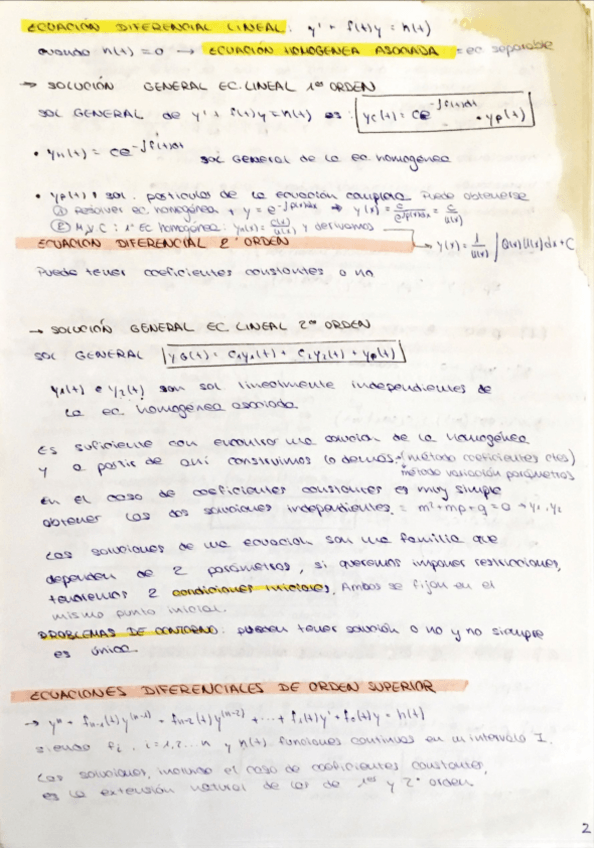 ECUACIÓN DIFERENCIAL LINEAL: y' + f(t)y = h(t)
cuando h(t) = 0 → ECUACIÓN HOMOGENEA ASOCIADA = ec separable
→ SOLUCIÓN GENERAL EC. LINEAL 1er ORDEN
SOL GENERAL de y' + f(t)y = h(t) es: yG(t) = ce^-∫f(t)dt + yp(t)
• yH(t) = ce^-∫f(t)dt sol general de la ec homogénea
• yp(t) = sol. particular de la ecuación completa. Puede obtenerse
① Resolver ec. homogénea + y = e^-∫p(x)dx → y(x) = c/e^∫p(x)dx = c/u(x)
② M.V.C : 1º EC homogénea: yH(x) = c(x)/u(x) y derivamos
→ y(x) = 1/u(x) ∫Q(x)u(x)dx + C
ECUACIÓN DIFERENCIAL 2º ORDEN
Puede tener coeficientes constantes o no
→ SOLUCIÓN GENERAL EC. LINEAL 2º ORDEN
SOL GENERAL yG(t) = c1y1(t) + c2y2(t) + yp(t)
y1(t) e y2(t) son sol. linealmente independientes de
la ec. homogénea asociada.
Es suficiente con encontrar una solución de la homogénea
y a partir de ahí construimos lo demás. (método coeficientes ctes)
método variación parámetros
En el caso de coeficientes constantes es muy simple
obtener las dos soluciones independientes. = m²+mp+q = 0 → y1, y2
Las soluciones de una ecuación son una familia que
dependen de 2 parámetros, si queremos imponer restricciones,
tendremos 2 condiciones iniciales. Ambas se fijan en el
mismo punto inicial.
PROBLEMAS DE CONTORNO: pueden tener solución o no y no siempre
es única.
ECUACIONES DIFERENCIALES DE ORDEN SUPERIOR
→ yⁿ + fn-1(t)y^(n-1) + fn-2(t)y^(n-2) + ... + f1(t)y' + f0(t)y = h(t)
siendo fi, i=1,2...n y h(t) funciones continuas en un intervalo I.
Las soluciones, incluido el caso de coeficientes constantes,
es la extensión natural de las de 1er y 2º orden.
2